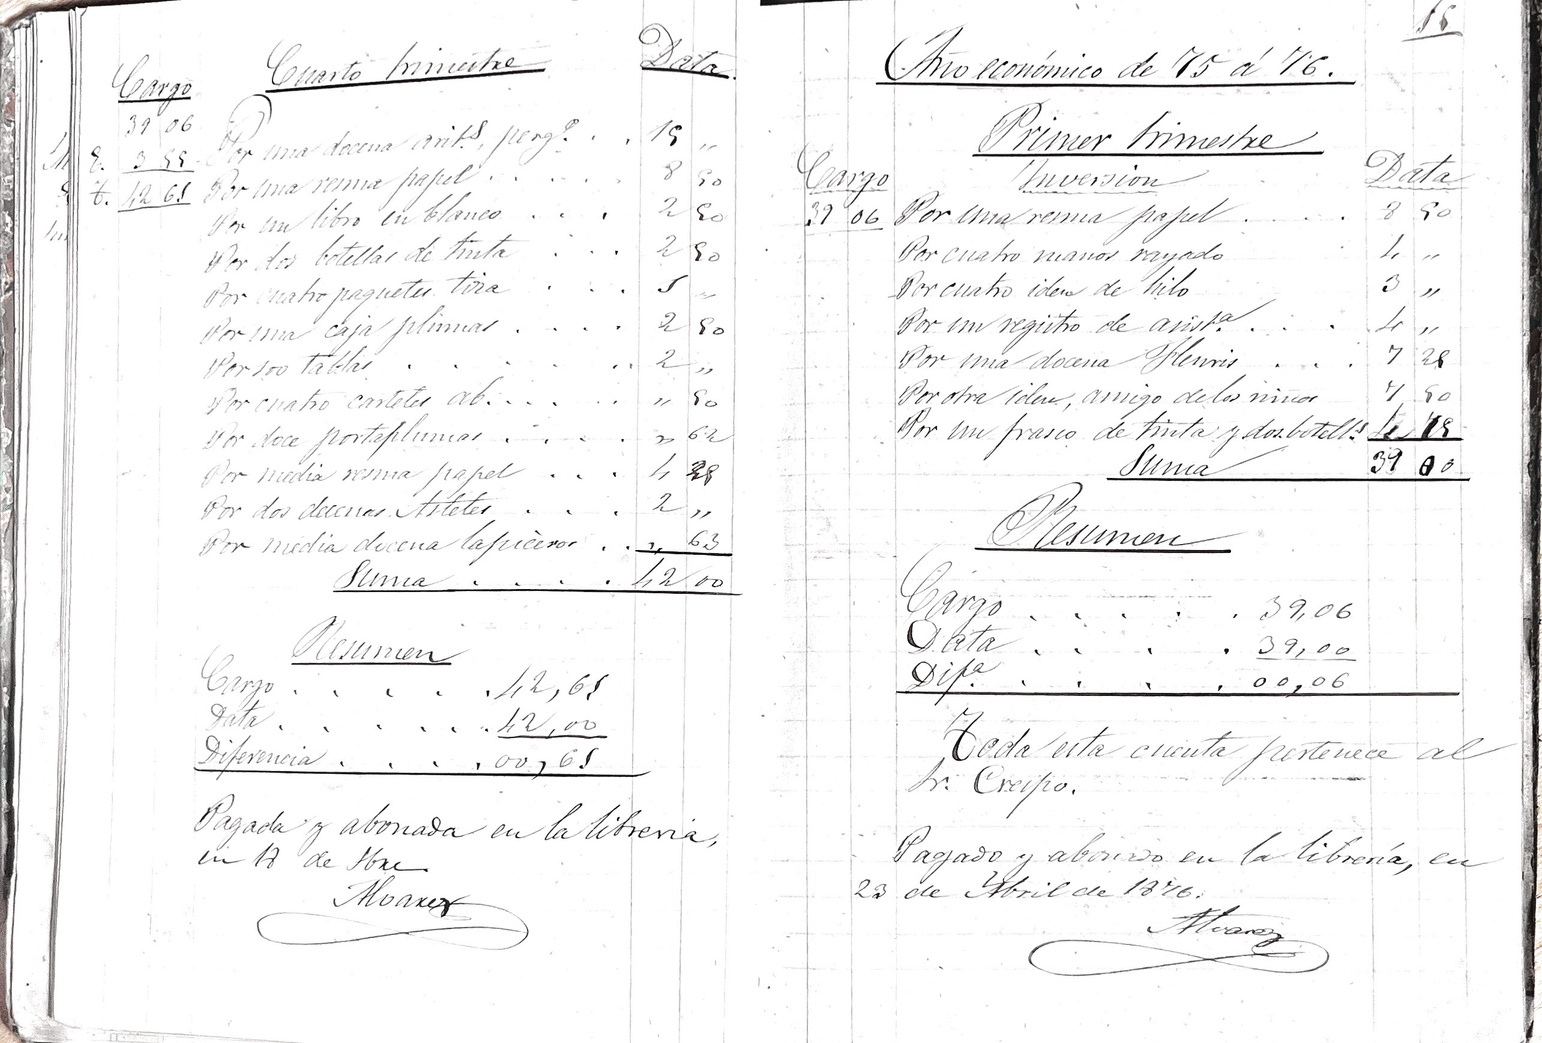 Cargo
Cuarto trimestre
Data
39 06
E. 3 55
T. 42 61
Por una docena arit.s, perg.o . . 15 „
Por una resma papel . . . . . 8 50
Por un libro en blanco . . . 2 50
Por dos botellas de tinta . . . 2 50
Por cuatro paquetes tiza . . . 1 „
Por una caja plumas . . . . 2 50
Por 100 tablas . . . . . . 2 „
Por cuatro carteles ab. . . . . „ 50
Por doce portaplumas . . . . „ 62
Por media resma papel . . . 4 25
Por dos decenas Astetes . . . . 2 „
Por media docena lapiceros . . „ 63
Suma . . . . . 42 00
Resumen
Cargo . . . . . 42,61
Data . . . . . . 42,00
Diferencia . . . . . 00,61
Pagada y abonada en la libreria,
en de
Alvarez
15
Año económico de 75 á 76.
Primer trimestre
Cargo
Inversion
Data
39 06
Por una resma papel . . . . 8 50
Por cuatro manos rayado 4 „
Por cuatro idem de hilo 3 „
Por un registro de asist.a . . . 4 „
Por una docena Fleuris . . . . 7 25
Por otra idem, amigo de los niños 7 50
Por un frasco de tinta y dos botell.s 4 75
Suma 39 00
Resumen
Cargo . . . . . . 39,06
Data . . . . . 39,00
Dif.a . . . . . 00,06
Toda esta cuenta pertenece al
Sr. Crespo.
Pagado y abonado en la librería, en
23 de Abril de 1876.
Alvarez